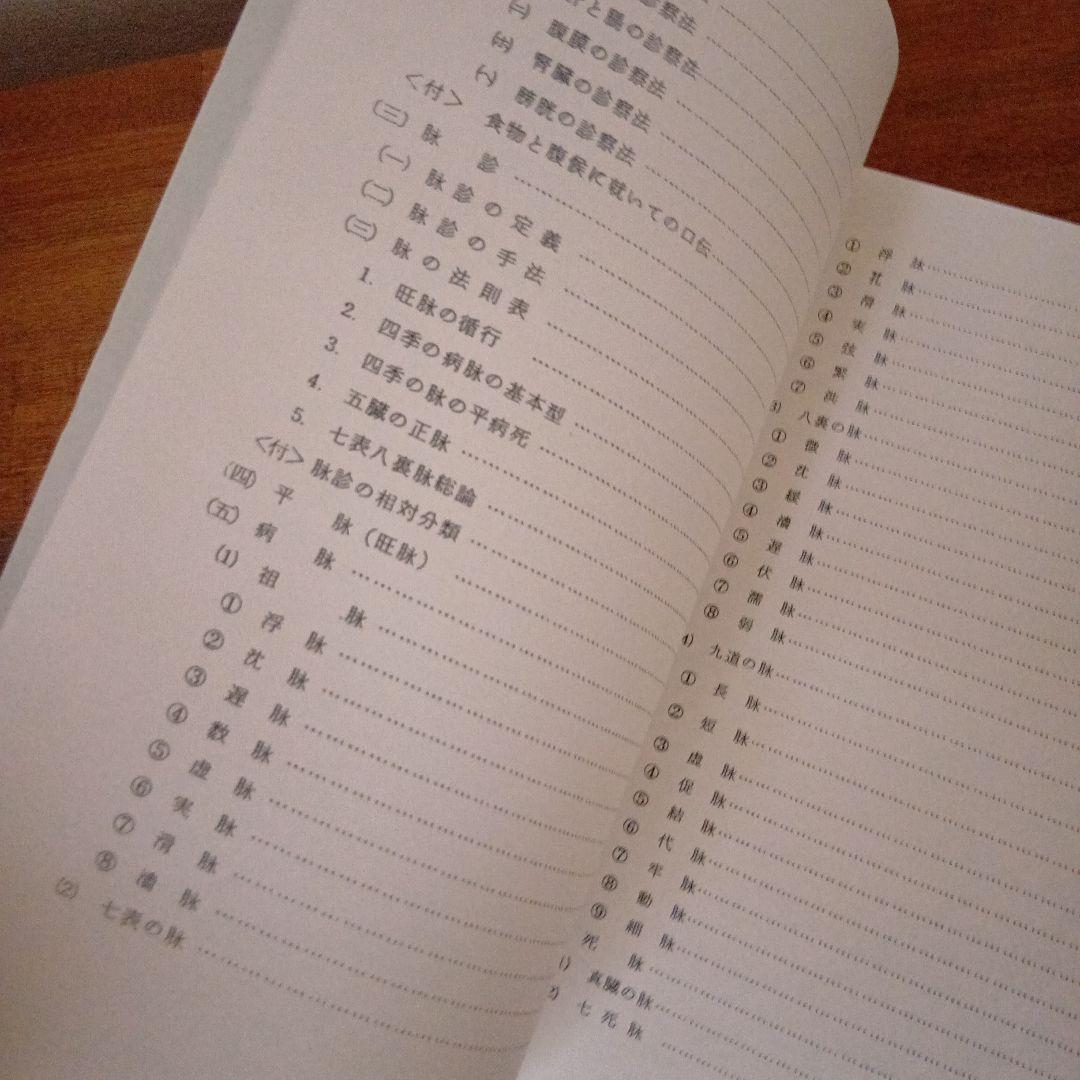 診察法
と腸の診察法
(二) 腹膜の診察法
(ホ) 腎臓の診察法
(ヘ) 膀胱の診察法
<付> 食物と腹候に就いての口伝
(三) 脈診
(一) 脈診の定義
(二) 脈診の手法
(三) 脈の法則表
1. 旺脉の循行
2. 四季の病脉の基本型
3. 四季の脉の平病死
4. 五臓の正脉
5. 七表八裏脉総論
<付> 脉診の相対分類
(四) 平脉(旺脉)
(五) 病脉
(1) 祖脉
① 浮脉
② 沈脉
③ 遅脉
④ 数脉
⑤ 虚脉
⑥ 実脉
⑦ 滑脉
⑧ 濇脉
(2) 七表の脉
① 浮脉
② 芤脉
③ 滑脉
④ 実脉
⑤ 弦脉
⑥ 緊脉
⑦ 洪脉
3) 八裏の脉
① 微脉
② 沈脉
③ 緩脉
④ 濇脉
⑤ 遅脉
⑥ 伏脉
⑦ 濡脉
⑧ 弱脉
4) 九道の脉
① 長脉
② 短脉
③ 虚脉
④ 促脉
⑤ 結脉
⑥ 代脉
⑦ 牢脉
⑧ 動脉
⑨ 細脉
死脉
1) 真臓の脉
2) 七死脉